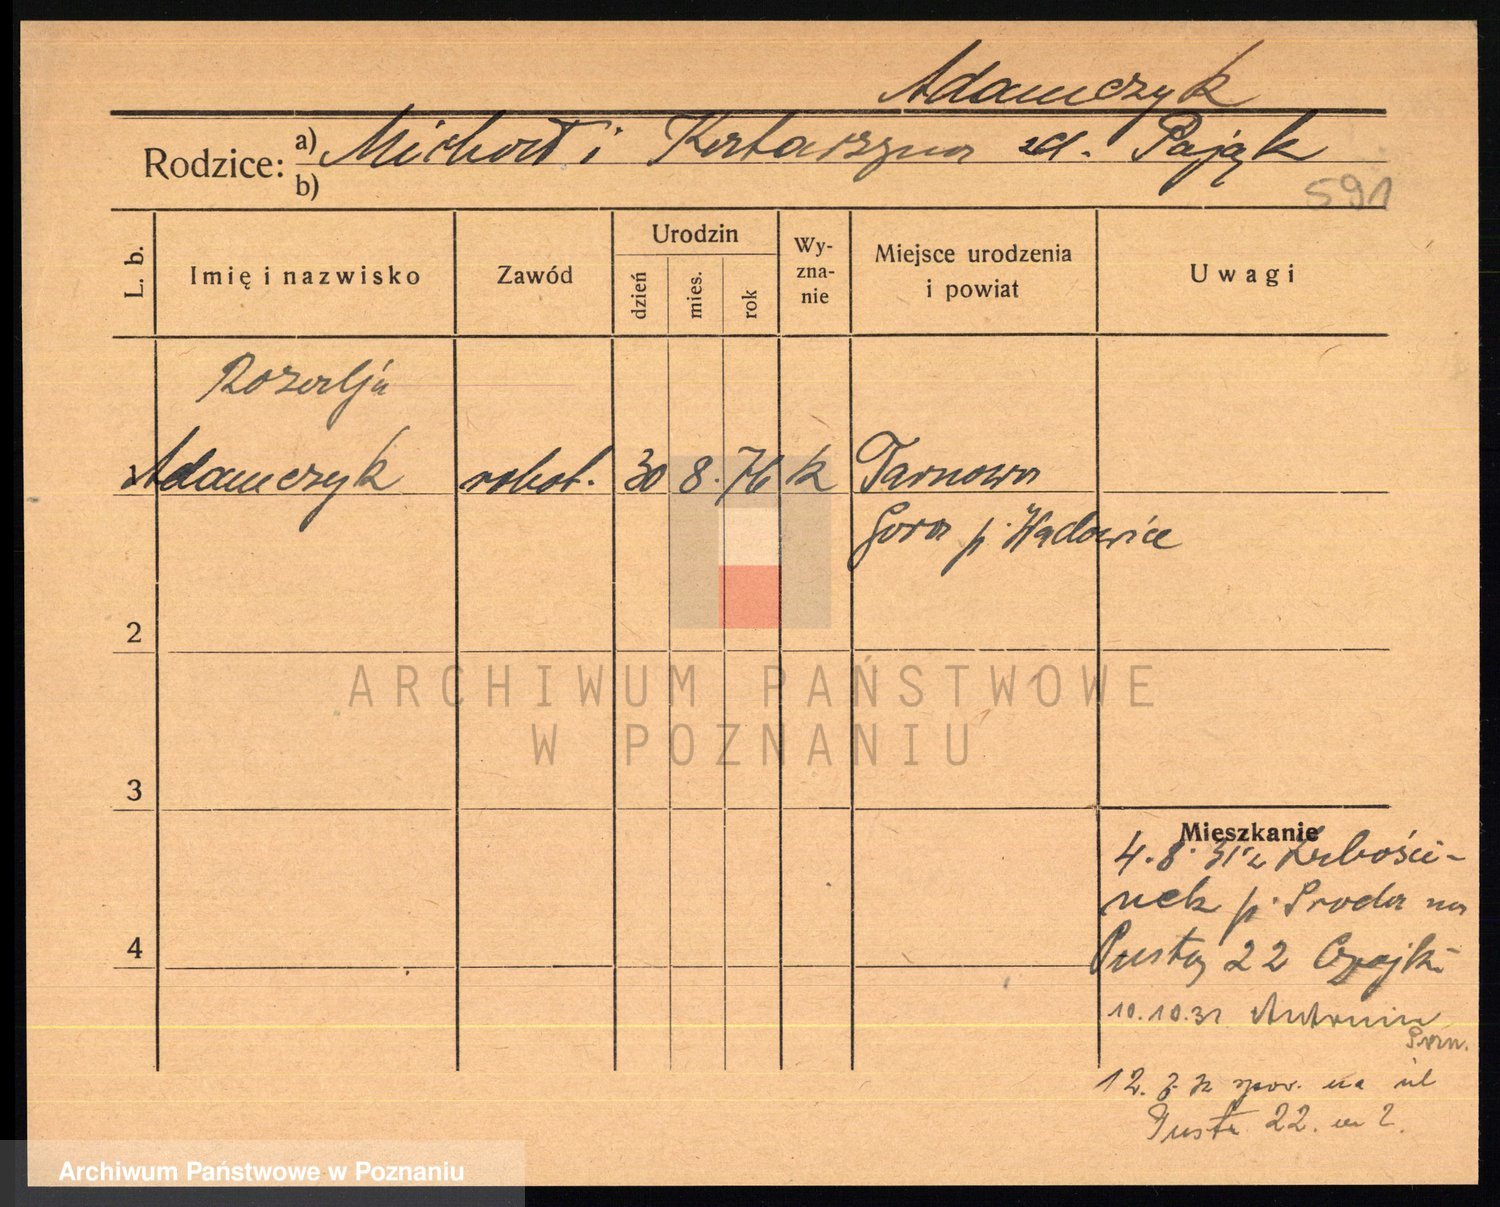 Adamczyk
Rodzice:
a) Michał i Katarzyna zd. Pająk
b)
591
L. b.
Imię i nazwisko
Zawód
Urodzin
dzień
mies.
rok
Wy-
zna-
nie
Miejsce urodzenia
i powiat
Uwagi
Rozalja
1 Adamczyk robot. 30 8. 76 k Tarnowa
Gora p. Wadowice
2
3
4
Mieszkanie
4.8. 31 z
nek p. Sroda na
Pusta 22
10.10.31 Antonin
12. na ul
Pusta 22. m 2.
ARCHIWUM PAŃSTWOWE
W POZNANIU
Archiwum Państwowe w Poznaniu